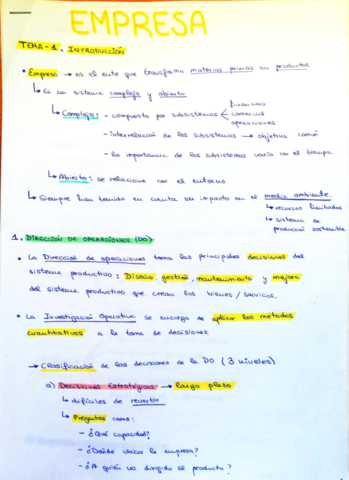 EMPRESA
TEMA-1. INTRODUCCIÓN
• Empresa → es el ente que transforma materias primas en productos
↳ Es un sistema complejo y abierto
financiero
↳ Complejo: - compuesto por subsistemas comercial
operaciones
- interrelación de los subsistemas → objetivo común
- la importancia de los subsistemas varía con el tiempo.
↳ Abierto: se relaciona con el entorno
↳ Siempre han tenido en cuenta su impacto en el medio ambiente.
↳ recursos limitados
↳ sistema de
producción sostenible
1. DIRECCIÓN DE OPERACIONES (DO)
• La Dirección de operaciones toma las principales decisiones del
sistema productivo: Diseño, gestión, mantenimiento y mejoras
del sistema productivo que crean los bienes / servicios.
• La Investigación Operativa se encarga de aplicar los métodos
cuantitativos a la toma de decisiones.
→ Clasificación de las decisiones de la DO (3 niveles)
a) Decisiones Estratégicas → largo plazo
↳ difíciles de revertir
↳ Preguntas como:
- ¿Qué capacidad?
- ¿Dónde ubicar la empresa?
- ¿A quién va dirigido el producto?